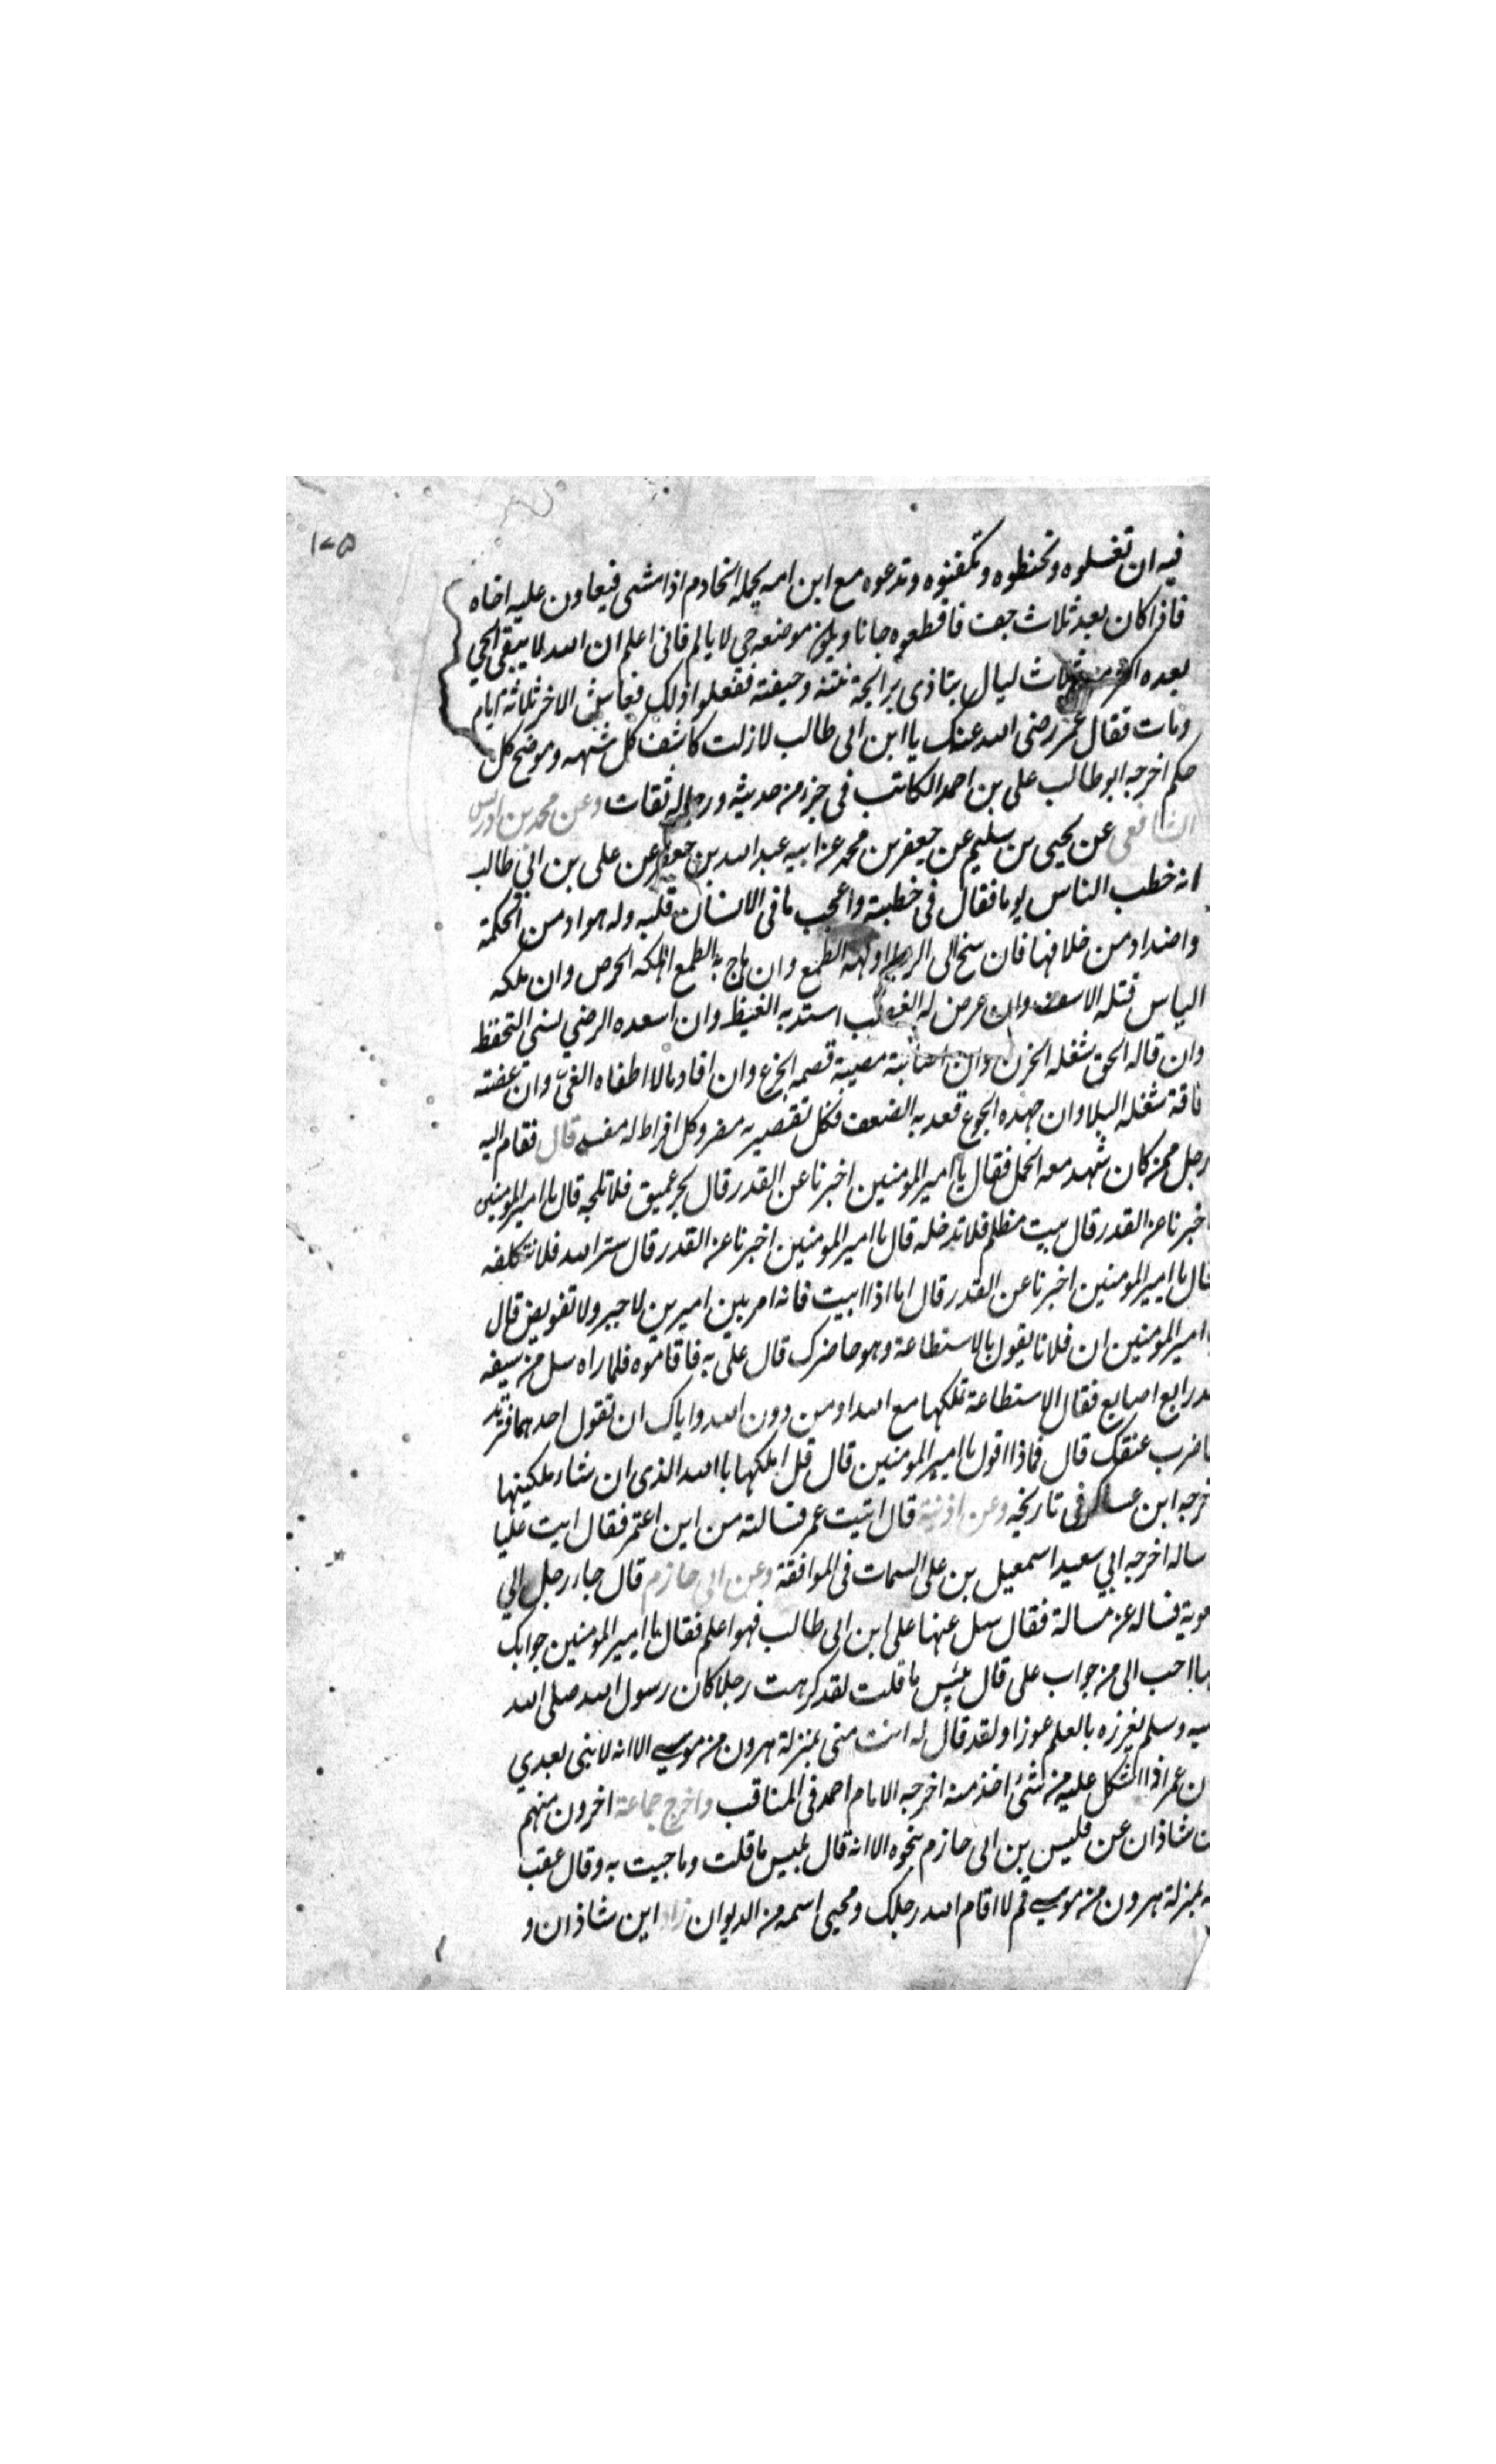 ١٧٥
فيه ان تغسلوه وتحنطوه وتكفنوه وتدعوه مع ابن امه يحمله الخادم اذا مشى فيعاون عليه اخاه
فاذا كان بعد ثلاث جفت فاقطعوه جانا ويكون موضعه حي لا يالم فاني اعلم ان الله لا يبقي الحي
بعده اكثر من ثلاث ليال يتاذى برائحة نتنه وجيفته ففعلوا ذلك فعاش الاخر ثلاثة ايام
ومات فقال عمر رضى الله عنك يا ابن ابى طالب لازلت كاشف كل شبهه وموضح كل
حكم اخرجه ابو طالب على بن احمد الكاتب فى جزء من حديثه ورجاله ثقات وعن محمد بن ادريس
الشافعى عن يحيى بن سليم عن جعفر بن محمد عن ابيه عبد الله بن جعفر عن على بن ابي طالب
انه خطب الناس يوما فقال فى خطبته واعجب ما فى الانسان قلبه وله مواد من الحكمة
واضداد من خلافها فان سنح الى الرجا اولهه الطمع وان هاج به الطمع اهلكه الحرص وان ملكه
الياس قتله الاسف وان عرض له الغضب استد به الغيظ وان اسعده الرضي نسي التحفظ
وان قاله الحق شغله الحزن وان اصابته مصيبة قصمه الجزع وان افاد مالا اطغاه الغيّ وان عضته
فاقة شغله البلا وان جهده الجوع قعد به الضعف فكل تقصير به مضر وكل افراط له مفسد قال فقام اليه
رجل ممن كان شهد معه الجمل فقال يا امير المومنين اخبرنا عن القدر قال بحر عميق فلا تلجه قال يا امير المومنين
اخبرنا عن القدر قال بيت مظلم فلا تدخله قال يا امير المومنين اخبرنا عن القدر قال ستر الله فلا تتكلفه
قال يا امير المومنين اخبرنا عن القدر قال اما اذا ابيت فانه امر بين امرين لا جبر ولا تفويض قال
يا امير المومنين ان فلانا يقول بالاستطاعة وهو حاضرك قال علىّ به فاقاموه فلما راه سل من سيفه
قدر اربع اصابع فقال الاستطاعة تملكها مع الله او من دون الله واياك ان تقول احدهما فترتد
فاضرب عنقك قال فماذا اقول يا امير المومنين قال قل املكها بالله الذى ان شاء ملكنيها
اخرجه ابن عساكر فى تاريخه وعن اذنية قال اتيت عمر فسالته من اين اعتمر فقال ايت عليا
فساله اخرجه ابي سعيد اسمعيل بن على السمات فى الموافقة وعن ابى حازم قال جاء رجل الي
معوية فساله عن مسالة فقال سل عنها على ابن ابى طالب فهو اعلم فقال يا امير المومنين جوابك
فيها احب الى من جواب على قال بئس ما قلت لقد كرهت رجلا كان رسول الله صلى الله
عليه وسلم يغرزه بالعلم عوزا ولقد قال له انت منى بمنزلة هرون من موسى الا انه لا نبى بعدي
وكان عمر اذا اشكل عليه من شئ اخذ منه اخرجه الامام احمد فى المناقب واخرج جماعة اخرون منهم
ابن شاذان عن قليس بن ابى حازم بنحوه الا انه قال بئيس ما قلت وما جيت به وقال عقب
بمنزلة هرون من موسى قم لا اقام الله رجلك ومحيى اسمه من الديوان زاد ابن شاذان و